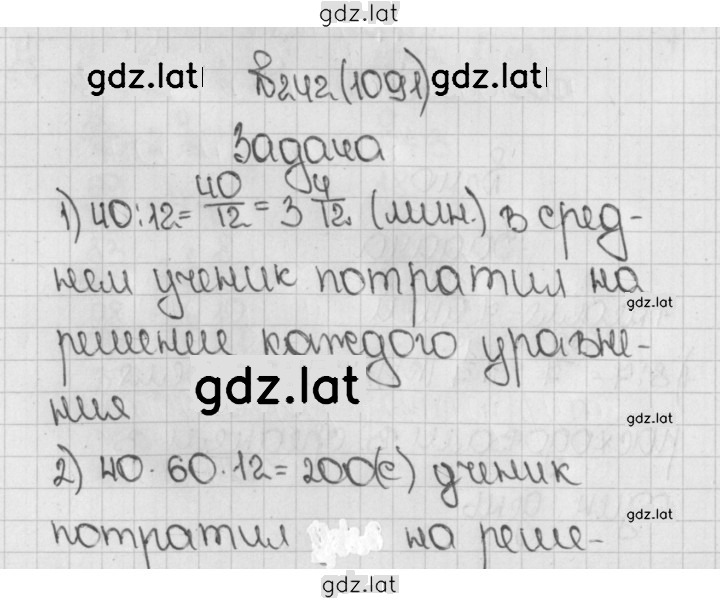 gdz.lat
gdz.lat №242(1091) gdz.lat
Задача
1) 40:12= 40/12 = 3 4/12 (мин.) в сред-
нем ученик потратил на
gdz.lat
решение каждого уравне-
gdz.lat
ния
gdz.lat
2) 40·60·12=200(с) ученик
gdz.lat
потратил на реше-
gdz.lat